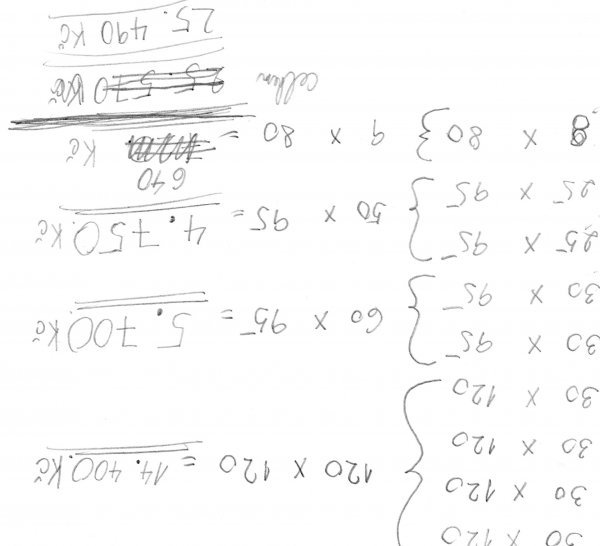 30 x 120
30 x 120
30 x 120 } 120 x 120 = 14.400 Kč
30 x 120
30 x 95
30 x 95 } 60 x 95 = 5.700 Kč
25 x 95
25 x 95 } 50 x 95 = 4.750 Kč
640
8 x 80 } 9 x 80 = Kč
celkem 25.570 Kč
25.490 Kč